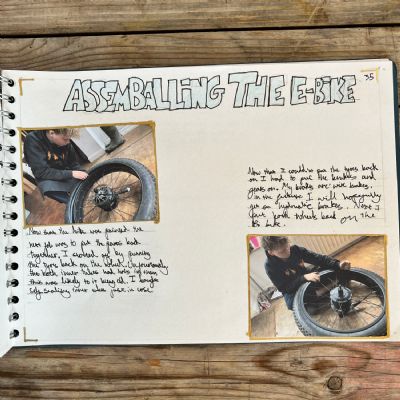 ASSEMBALLING THE E-BIKE
35
Now that the bike was painted the
next job was to put the tyres back
together. I started off by putting
the tyres back on the wheel.
the both inner tubes had hols in them
this was likely to it being old. I bought
self sealing inner tubes just in case.
Now that I could to put the tyres back
on I had to put the brakes and
gears on. My brakes are wire brakes.
in the future I will hopefully
get on hydraulic brakes. Next I
put both wheels back on the
bike.